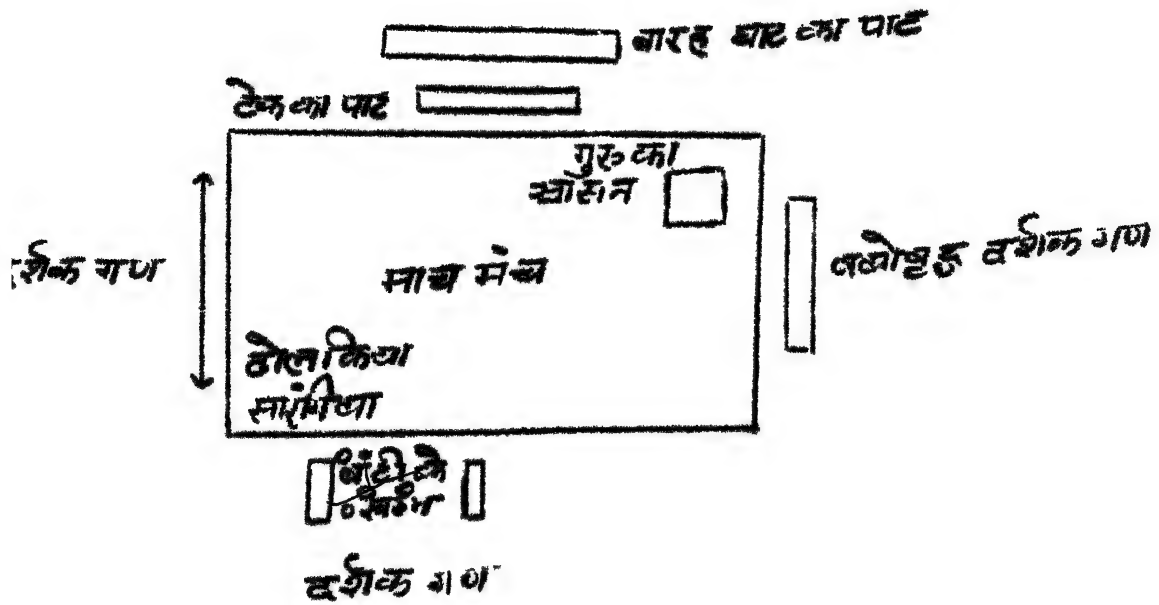 बारह घाट का पाट
टेक का पाट
गुरु का
आसन
दर्शक गण
माच मंच
वयोवृद्ध दर्शक गण
ढोलकिया
सारंगिया
के
दर्शक गण